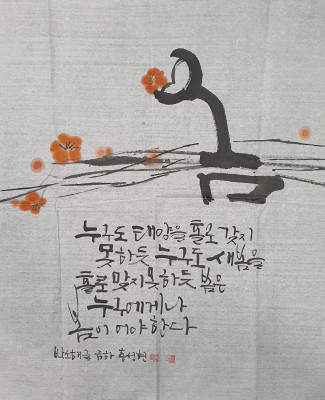 누구도 태양을 홀로 갖지
못하듯 누구도 새봄을
홀로 맞지 못하듯 봄은
누구에게나
봄이어야 한다
박노해글 금하 홍성현